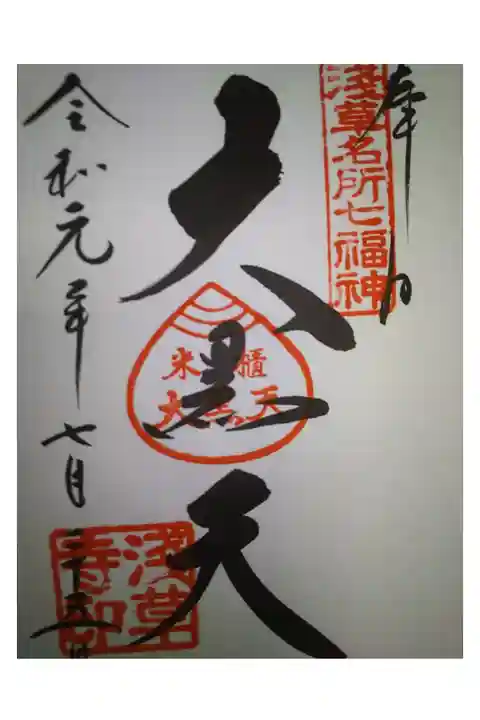 奉拝
浅草名所七福神
大黒天
米櫃
大黒天
令和元年七月二十五日
浅草
寺印